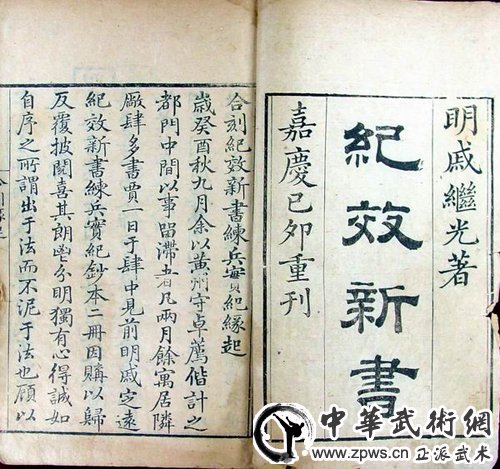 明戚繼光著
紀效新書
嘉慶己卯重刊
合刻紀效新書練兵實紀緣起
歲癸酉秋九月余以黃州守卓薦偕計之
都門中間以事留滯者凡兩月餘寓居隣
廠肆多書賈一日于肆中見前明戚定遠
紀效新書練兵實紀鈔本二冊因購以歸
反覆披閱喜其朗鬯分明獨有心得誠如
自序之所謂出于法而不泥于法也顧以
中華武術網
www.zpws.cn 正派武术